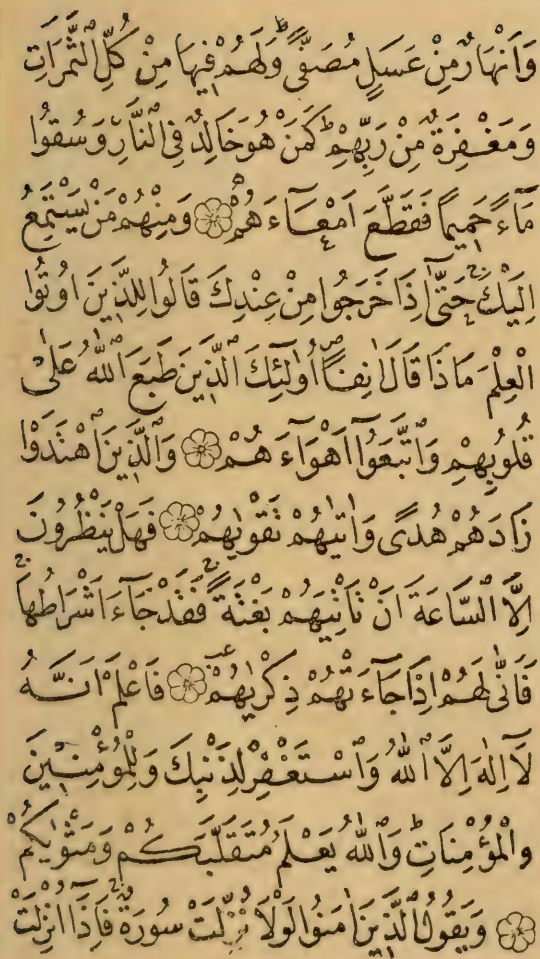 وَاَنْهَارٌ مِنْ عَسَلٍ مُصَفًّىۜ وَلَهُمْ فٖيهَا مِنْ كُلِّ الثَّمَرَاتِ
وَمَغْفِرَةٌ مِنْ رَبِّهِمْۜ كَمَنْ هُوَ خَالِدٌ فِى النَّارِ وَسُقُوا
مَٓاءً حَمٖيمًا فَقَطَّعَ اَمْعَٓاءَهُمْ ۞ وَمِنْهُمْ مَنْ يَسْتَمِعُ
اِلَيْكَۚ حَتّٰٓى اِذَا خَرَجُوا مِنْ عِنْدِكَ قَالُوا لِلَّذٖينَ اُوتُوا
الْعِلْمَ مَاذَا قَالَ اٰنِفًا اُو۬لٰٓئِكَ الَّذٖينَ طَبَعَ اللّٰهُ عَلٰى
قُلُوبِهِمْ وَاتَّبَعُٓوا اَهْوَٓاءَهُمْ ۞ وَالَّذٖينَ اهْتَدَوْا
زَادَهُمْ هُدًى وَاٰتٰيهُمْ تَقْوٰيهُمْ ۞ فَهَلْ يَنْظُرُونَ
اِلَّا السَّاعَةَ اَنْ تَاْتِيَهُمْ بَغْتَةًۚ فَقَدْ جَٓاءَ اَشْرَاطُهَاۚ
فَاَنّٰى لَهُمْ اِذَا جَٓاءَتْهُمْ ذِكْرٰيهُمْ ۞ فَاعْلَمْ اَنَّهُ
لَٓا اِلٰهَ اِلَّا اللّٰهُ وَاسْتَغْفِرْ لِذَنْبِكَ وَلِلْمُؤْمِنٖينَ
وَالْمُؤْمِنَاتِۜ وَاللّٰهُ يَعْلَمُ مُتَقَلَّبَكُمْ وَمَثْوٰيكُمْ
۞ وَيَقُولُ الَّذٖينَ اٰمَنُوا لَوْلَا نُزِّلَتْ سُورَةٌۚ فَاِذَٓا اُنْزِلَتْ